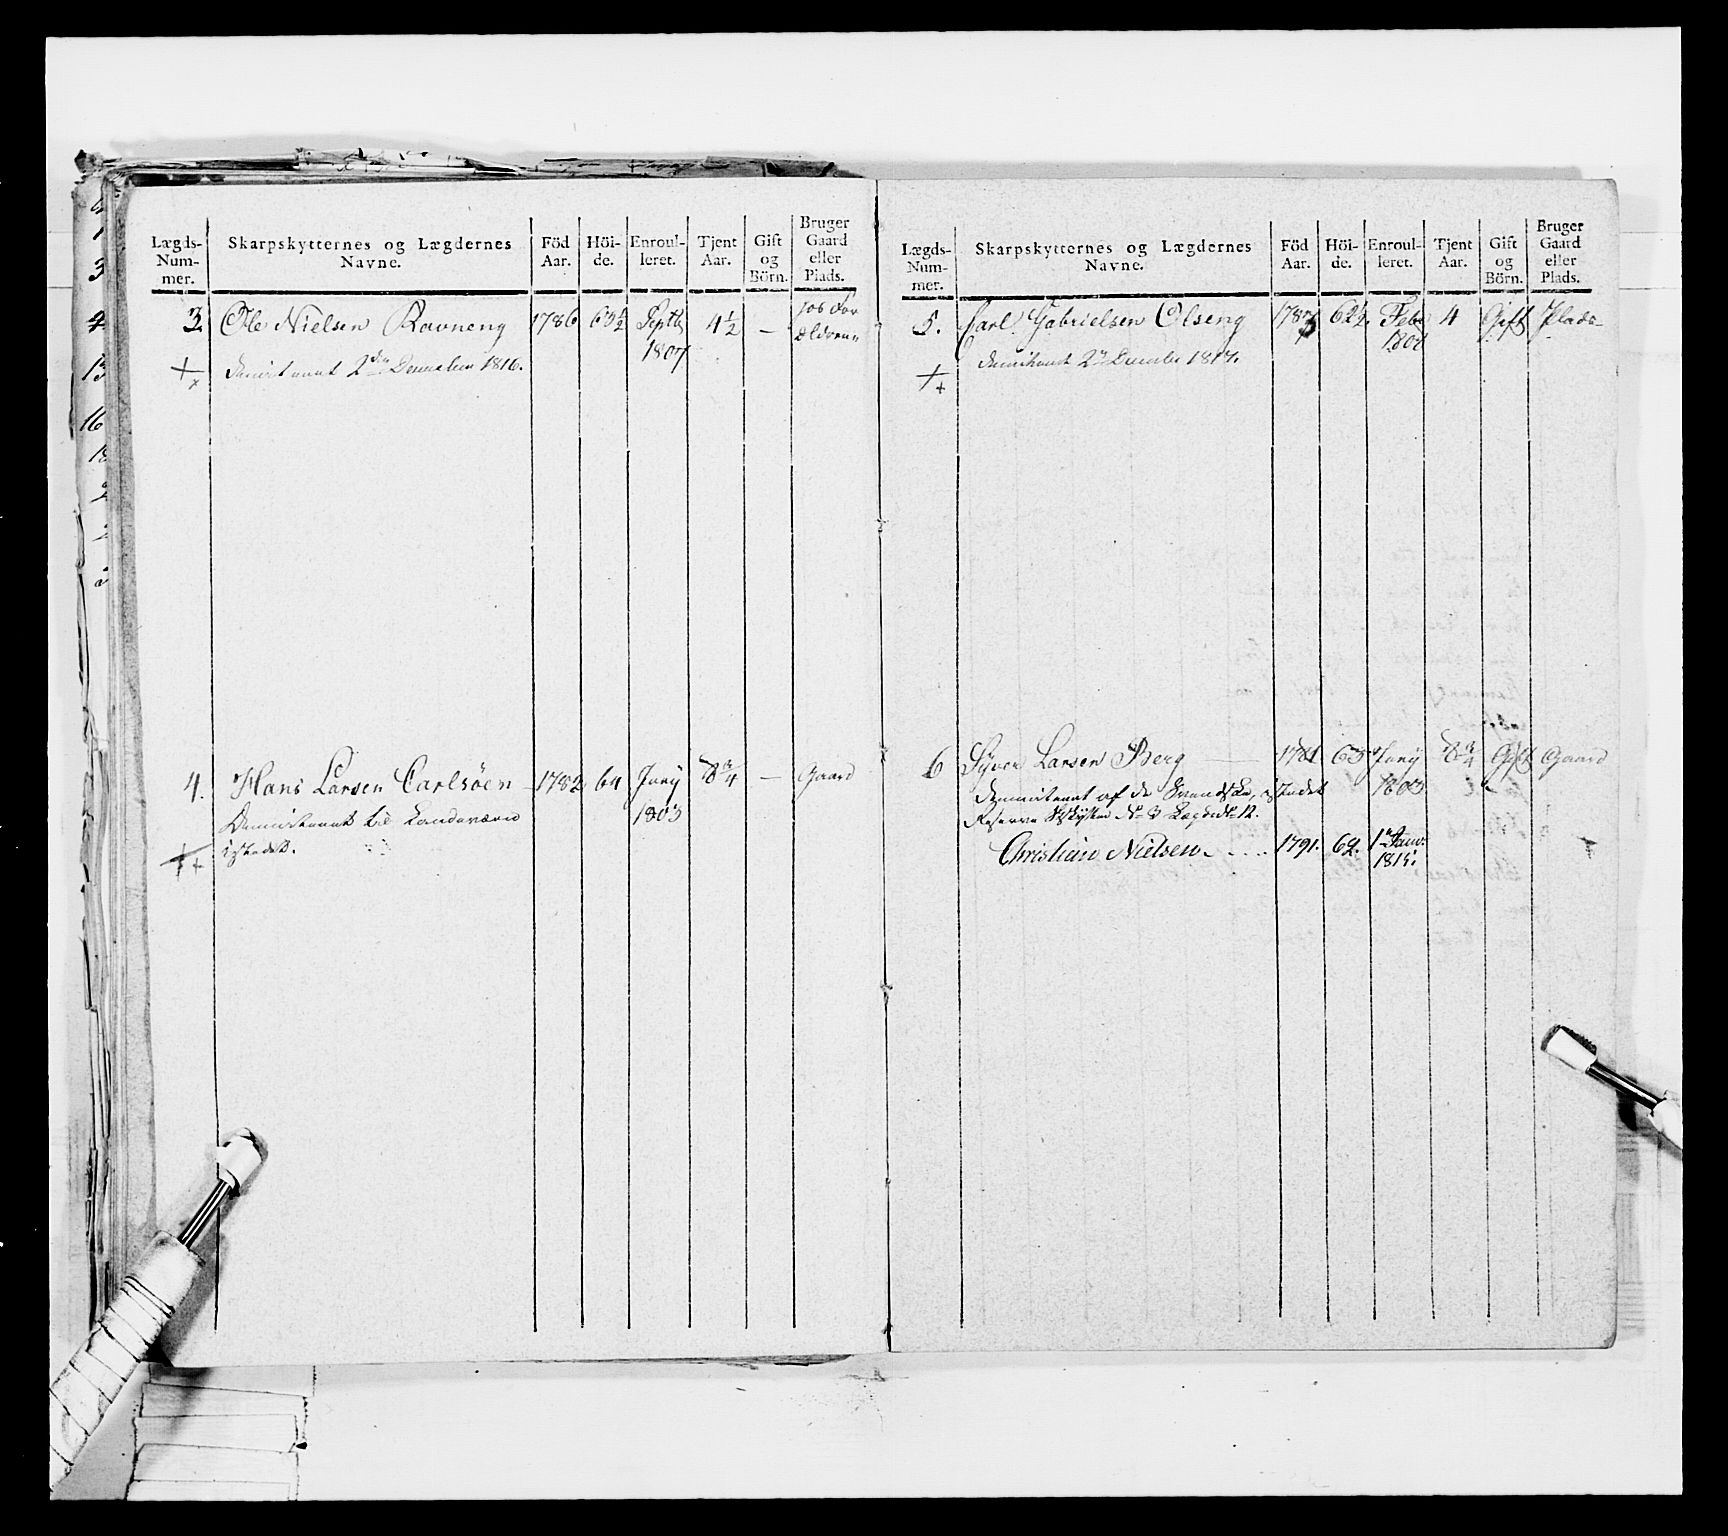 Lægds-Num-mer.
Skarpskytternes og Lægdernes Navne.
Föd Aar.
Höi-de.
Enroul-leret.
Tjent Aar.
Gift og Börn.
Bruger Gaard eller Plads.
3. Ole Nielsen Ravneng 1786 63½ Septb 4½ — hos For
1807 ældrene
dimitteret 2den December 1816.
4. Hans Larsen Carlsöen 1782 64 Juny 8¾ — Gaard
Dimitteret til Landeværn 1803
istedet.
Lægds-Num-mer.
Skarpskytternes og Lægdernes Navne.
Föd Aar.
Höi-de.
Enroul-leret.
Tjent Aar.
Gift og Börn.
Bruger Gaard eller Plads.
5. Carl Gabrielsen Olseng 62½ Febr 4 Gift Plads
1807
dimitteret 2den December 1817.
6 Syver Larsen Berg 1781 63 Juny 8¾ Gift Gaard
Dimitteret af de Svendske, istedet 1803
Reserve No 3 Lægd No 12.
Christian Nielsen 1791. 62. 1ste Janr:
1815.